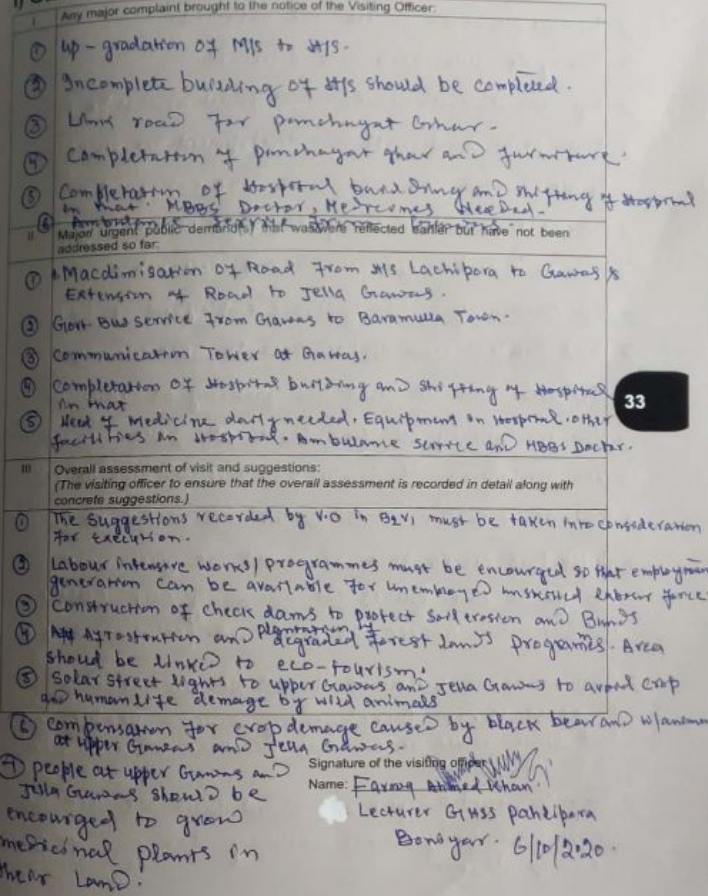 I Any major complaint brought to the notice of the Visiting Officer:
① Up-gradation of M/S to H/S.
② Incomplete building of H/S should be completed.
③ Link road for panchayat Ghar.
④ Completation of panchayat ghar and furniture.
⑤ Completation of Hospital building and shifting of Hospital
in that. MBBS Doctor, Medicines Needed.
⑥ Ambulance service
II Major/ urgent public demand(s) that was/were reflected earlier but have not been
addressed so far:
① Macdimisation of Road from H/S Lachipora to Gawas &
Extension of Road to Jella Gawas.
② Govt. Bus service from Gawas to Baramulla Town.
③ Communication Tower at Gawas.
④ Completation of Hospital building and shifting of Hospital
in that
33
⑤ Need of Medicine daily needed. Equipment in Hospital. other
facilities in Hospital. Ambulance service and MBBS Doctor.
III Overall assessment of visit and suggestions:
(The visiting officer to ensure that the overall assessment is recorded in detail along with
concrete suggestions.)
① The Suggestions recorded by V.O in B2V1 must be taken into consideration
for execution.
② Labour intensive works/programmes must be encourged so that employmen
generation can be available for unemployed unskilled labour force
③ Construction of check dams to protect Soil erosion and Bunds
④ and plantation degraded forest lands programmes. Area
shoud be linked to eco-tourism.
⑤ Solar street lights to upper Gawas and Jella Gawas to avoid crop
and human life demage by wild animals
⑥ Compensation for crop demage caused by black bear and w/anim
at upper Gawas and Jella Gawas.
⑦ people at upper Gawas and
Jella Gawas should be
encourged to grow
medicinal plants in
their Land.
Signature of the visiting officer
Name: Farooq Ahmed Khan
Lecturer GHSS Pahlipora
Boniyar. 6/10/2020.